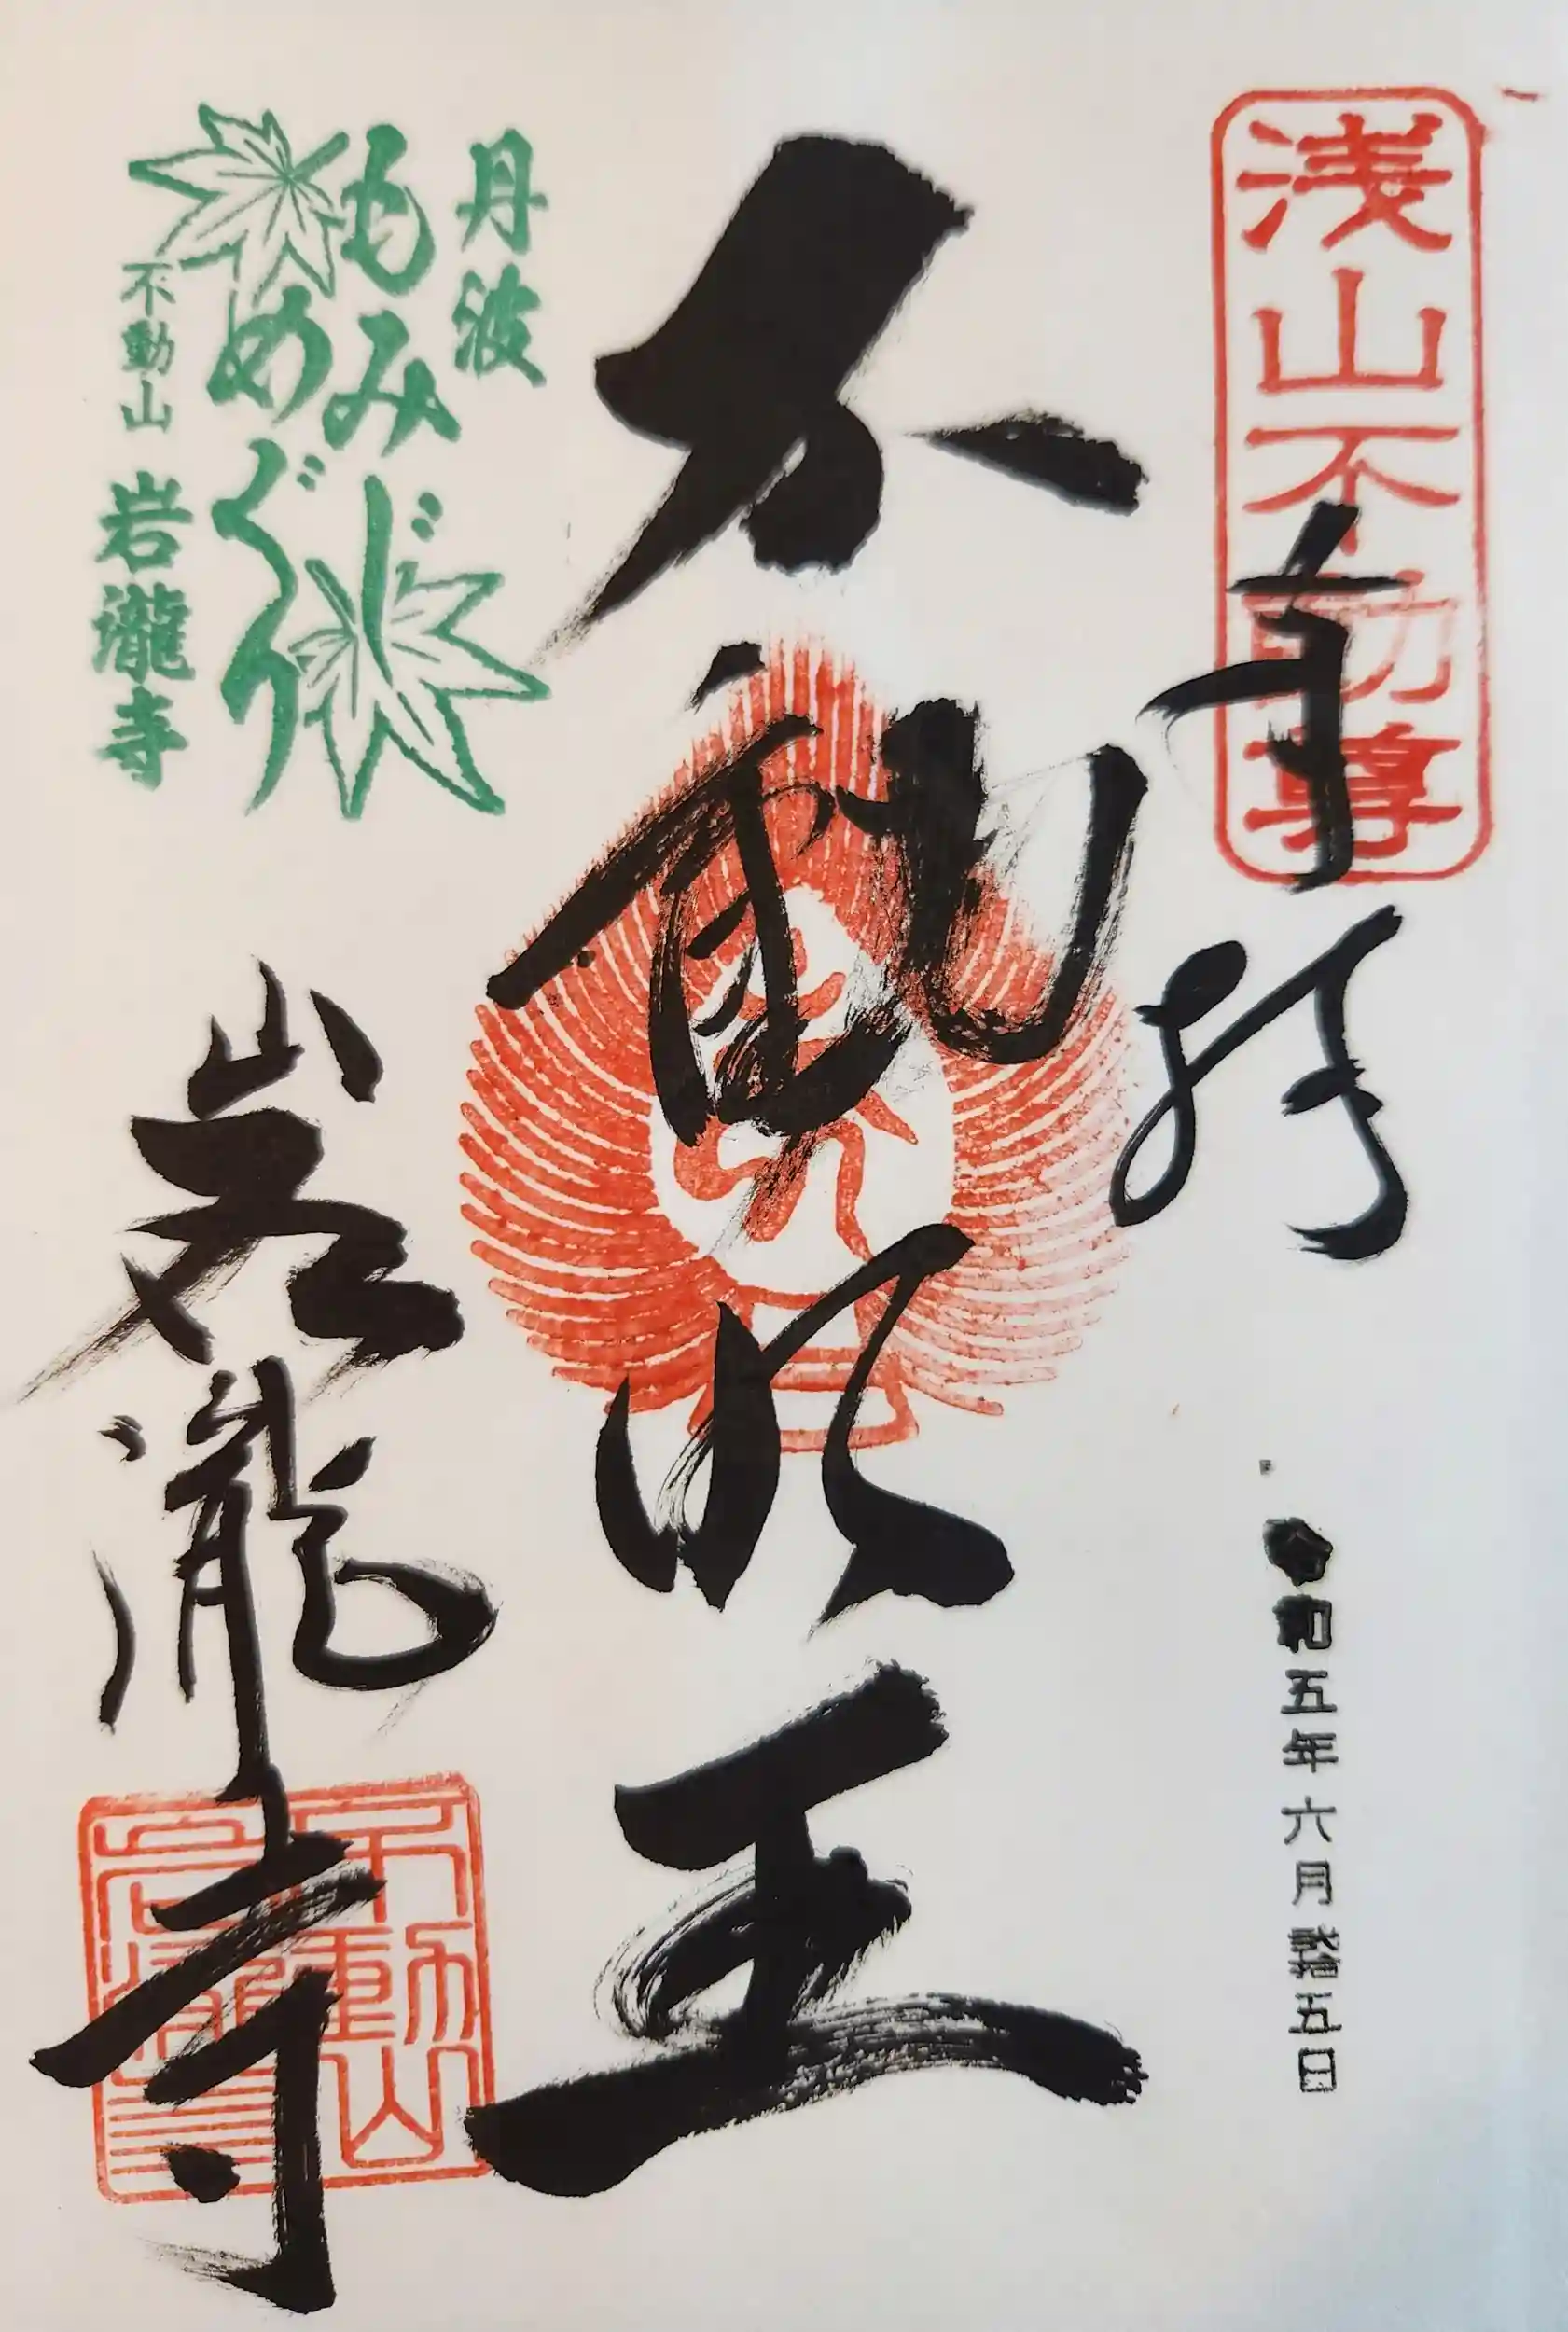 浅山不動尊
奉拝
令和五年六月弐拾五日
不動明王
丹波
もみじ
めぐり
不動山 岩瀧寺
岩瀧寺
不動山